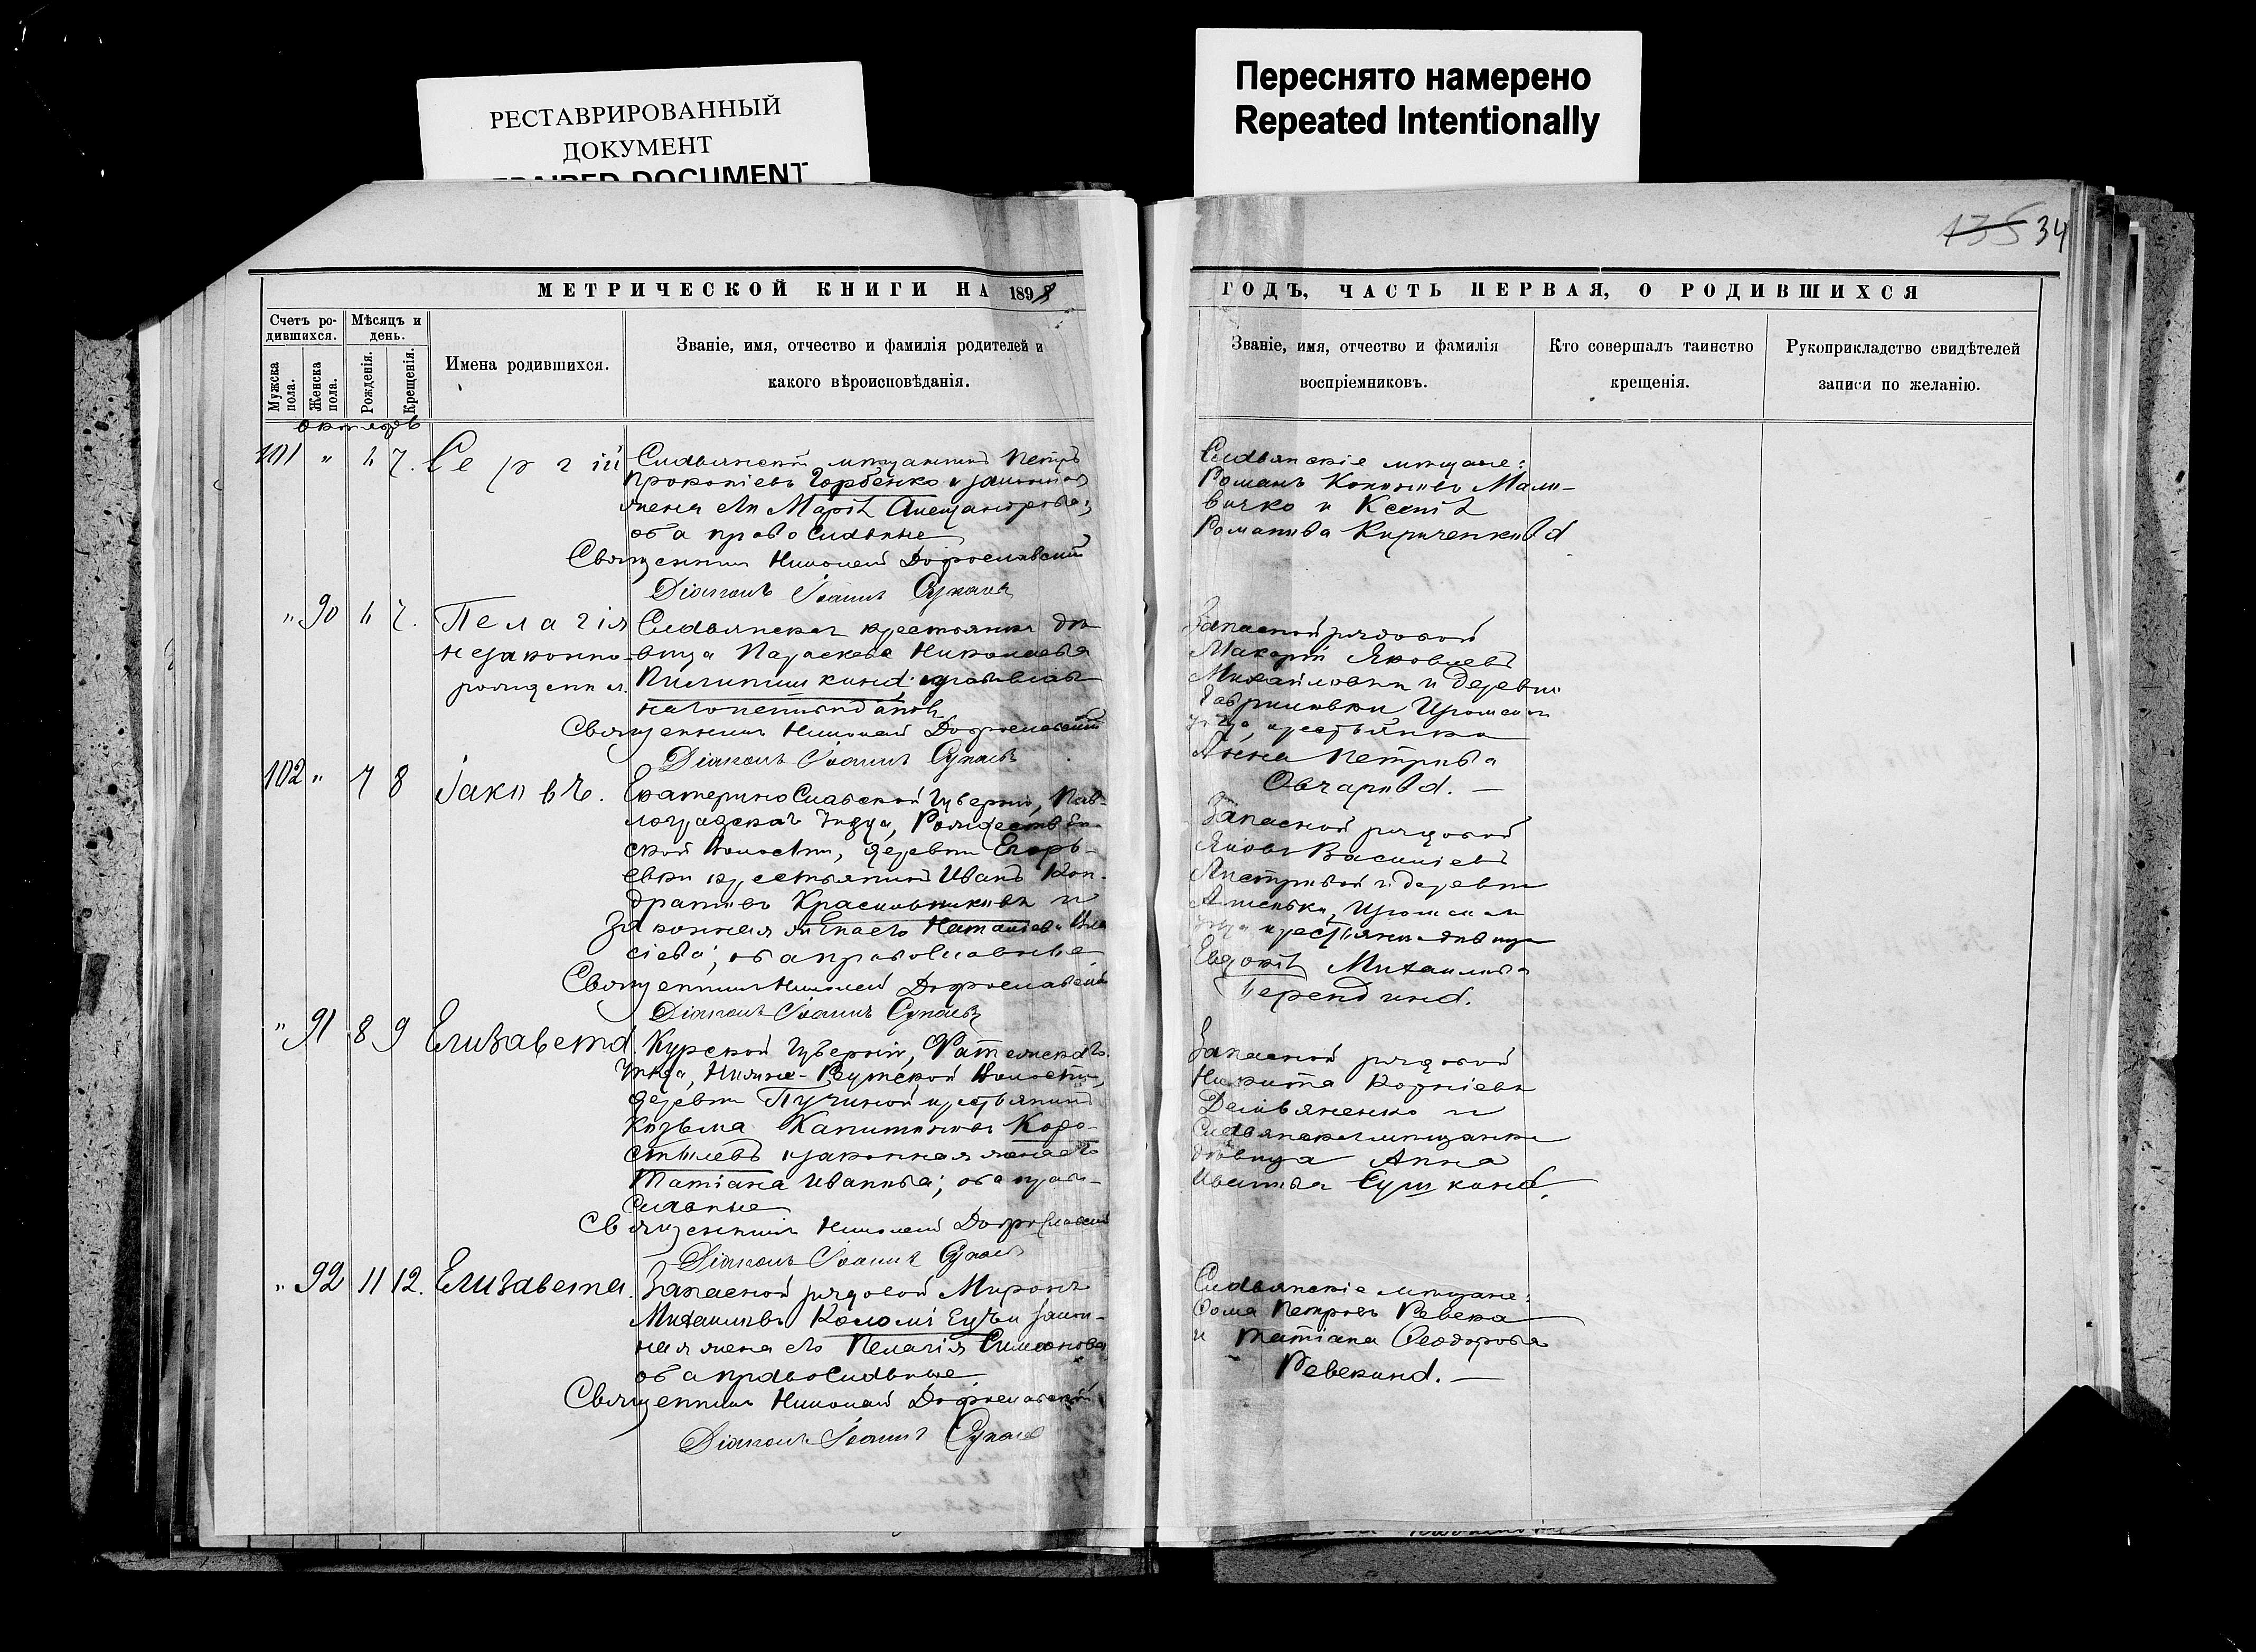 РЕСТАВРИРОВАННЫЙ
ДОКУМЕНТ
DOCUMENT
Переснято намерено
Repeated Intentionally
135 34
МЕТРИЧЕСКОЙ КНИГИ НА 1898
ГОДЪ, ЧАСТЬ ПЕРВАЯ, О РОДИВШИХСЯ
Счетъ ро-
дившихся.
Мужска
пола.
Женска
пола.
Мѣсяцъ и
день.
Рожденія.
Крещенія.
Имена родившихся.
Званіе, имя, отчество и фамилія родителей и
какого вѣроисповѣданія.
Званіе, имя, отчество и фамилія
воспріемниковъ.
Кто совершалъ таинство
крещенія.
Рукоприкладство свидѣтелей
записи по желанію.
октябрь
101 " 6 7. Сергій
Славянскій мѣщанинъ Петръ
Прокопіевъ Горбенко и законная
жена его Марія Александрова;
оба православные
Священникъ Николай Доброславскій
Діаконъ Іоаннъ
Славянскіе мѣщане:
Романъ
и Ксенія
Романова Кириченкова
" 90 6 7. Пелагія
незаконно-
рожденная.
Славянская крестьянка дѣ-
вица Параскева Николаева
православная
Священникъ Николай Доброславскій
Діаконъ Іоаннъ
Запасной рядовой
Макарій Яковлевъ
и деревни
Гавриловки Изюмскаго
уѣзда, крестьянка
Анна Петрова
Овчарова. —
102 " 7 8 Іаковъ.
Екатеринославской губерніи, Пав-
лоградскаго уѣзда, Рождествен-
ской волости, деревни Егорь-
евки крестьянинъ Иванъ Кон-
дратовъ Красильниковъ и
законная жена его
оба православные
Священникъ Николай Доброславскій
Діаконъ Іоаннъ
Запасной рядовой
Яковъ Василіевъ
и деревни
Изюмскаго
уѣзда крестьянка дѣвица
Евдокія Михаилова
" 91 8 9 Елизавета.
Курской губерніи, Фатежскаго
уѣзда, Нижне-Реутской волости,
деревни крестьянинъ
Козьма Капитоновъ Коро-
стылевъ и законная жена его
Татіана Иванова; оба право-
славные
Священникъ Николай Доброславскій
Діаконъ Іоаннъ
Запасной рядовой
Никита Корніевъ
и
Славянская мѣщанка
дѣвица Анна
Иванова Сушкова.
" 92 11 12. Елизавета.
Запасной рядовой Миронъ
Михаиловъ Коломіецъ и закон-
ная жена его Пелагія Симеонова
оба православные
Священникъ Николай Доброславскій
Діаконъ Іоаннъ
Славянскіе мѣщане:
Ѳома Петровъ Ревека
и Татіана Ѳеодорова
Ревекина. —